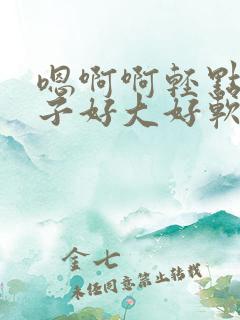 嗯啊啊轻點
子好大好軟
金七
未经同意禁止转载